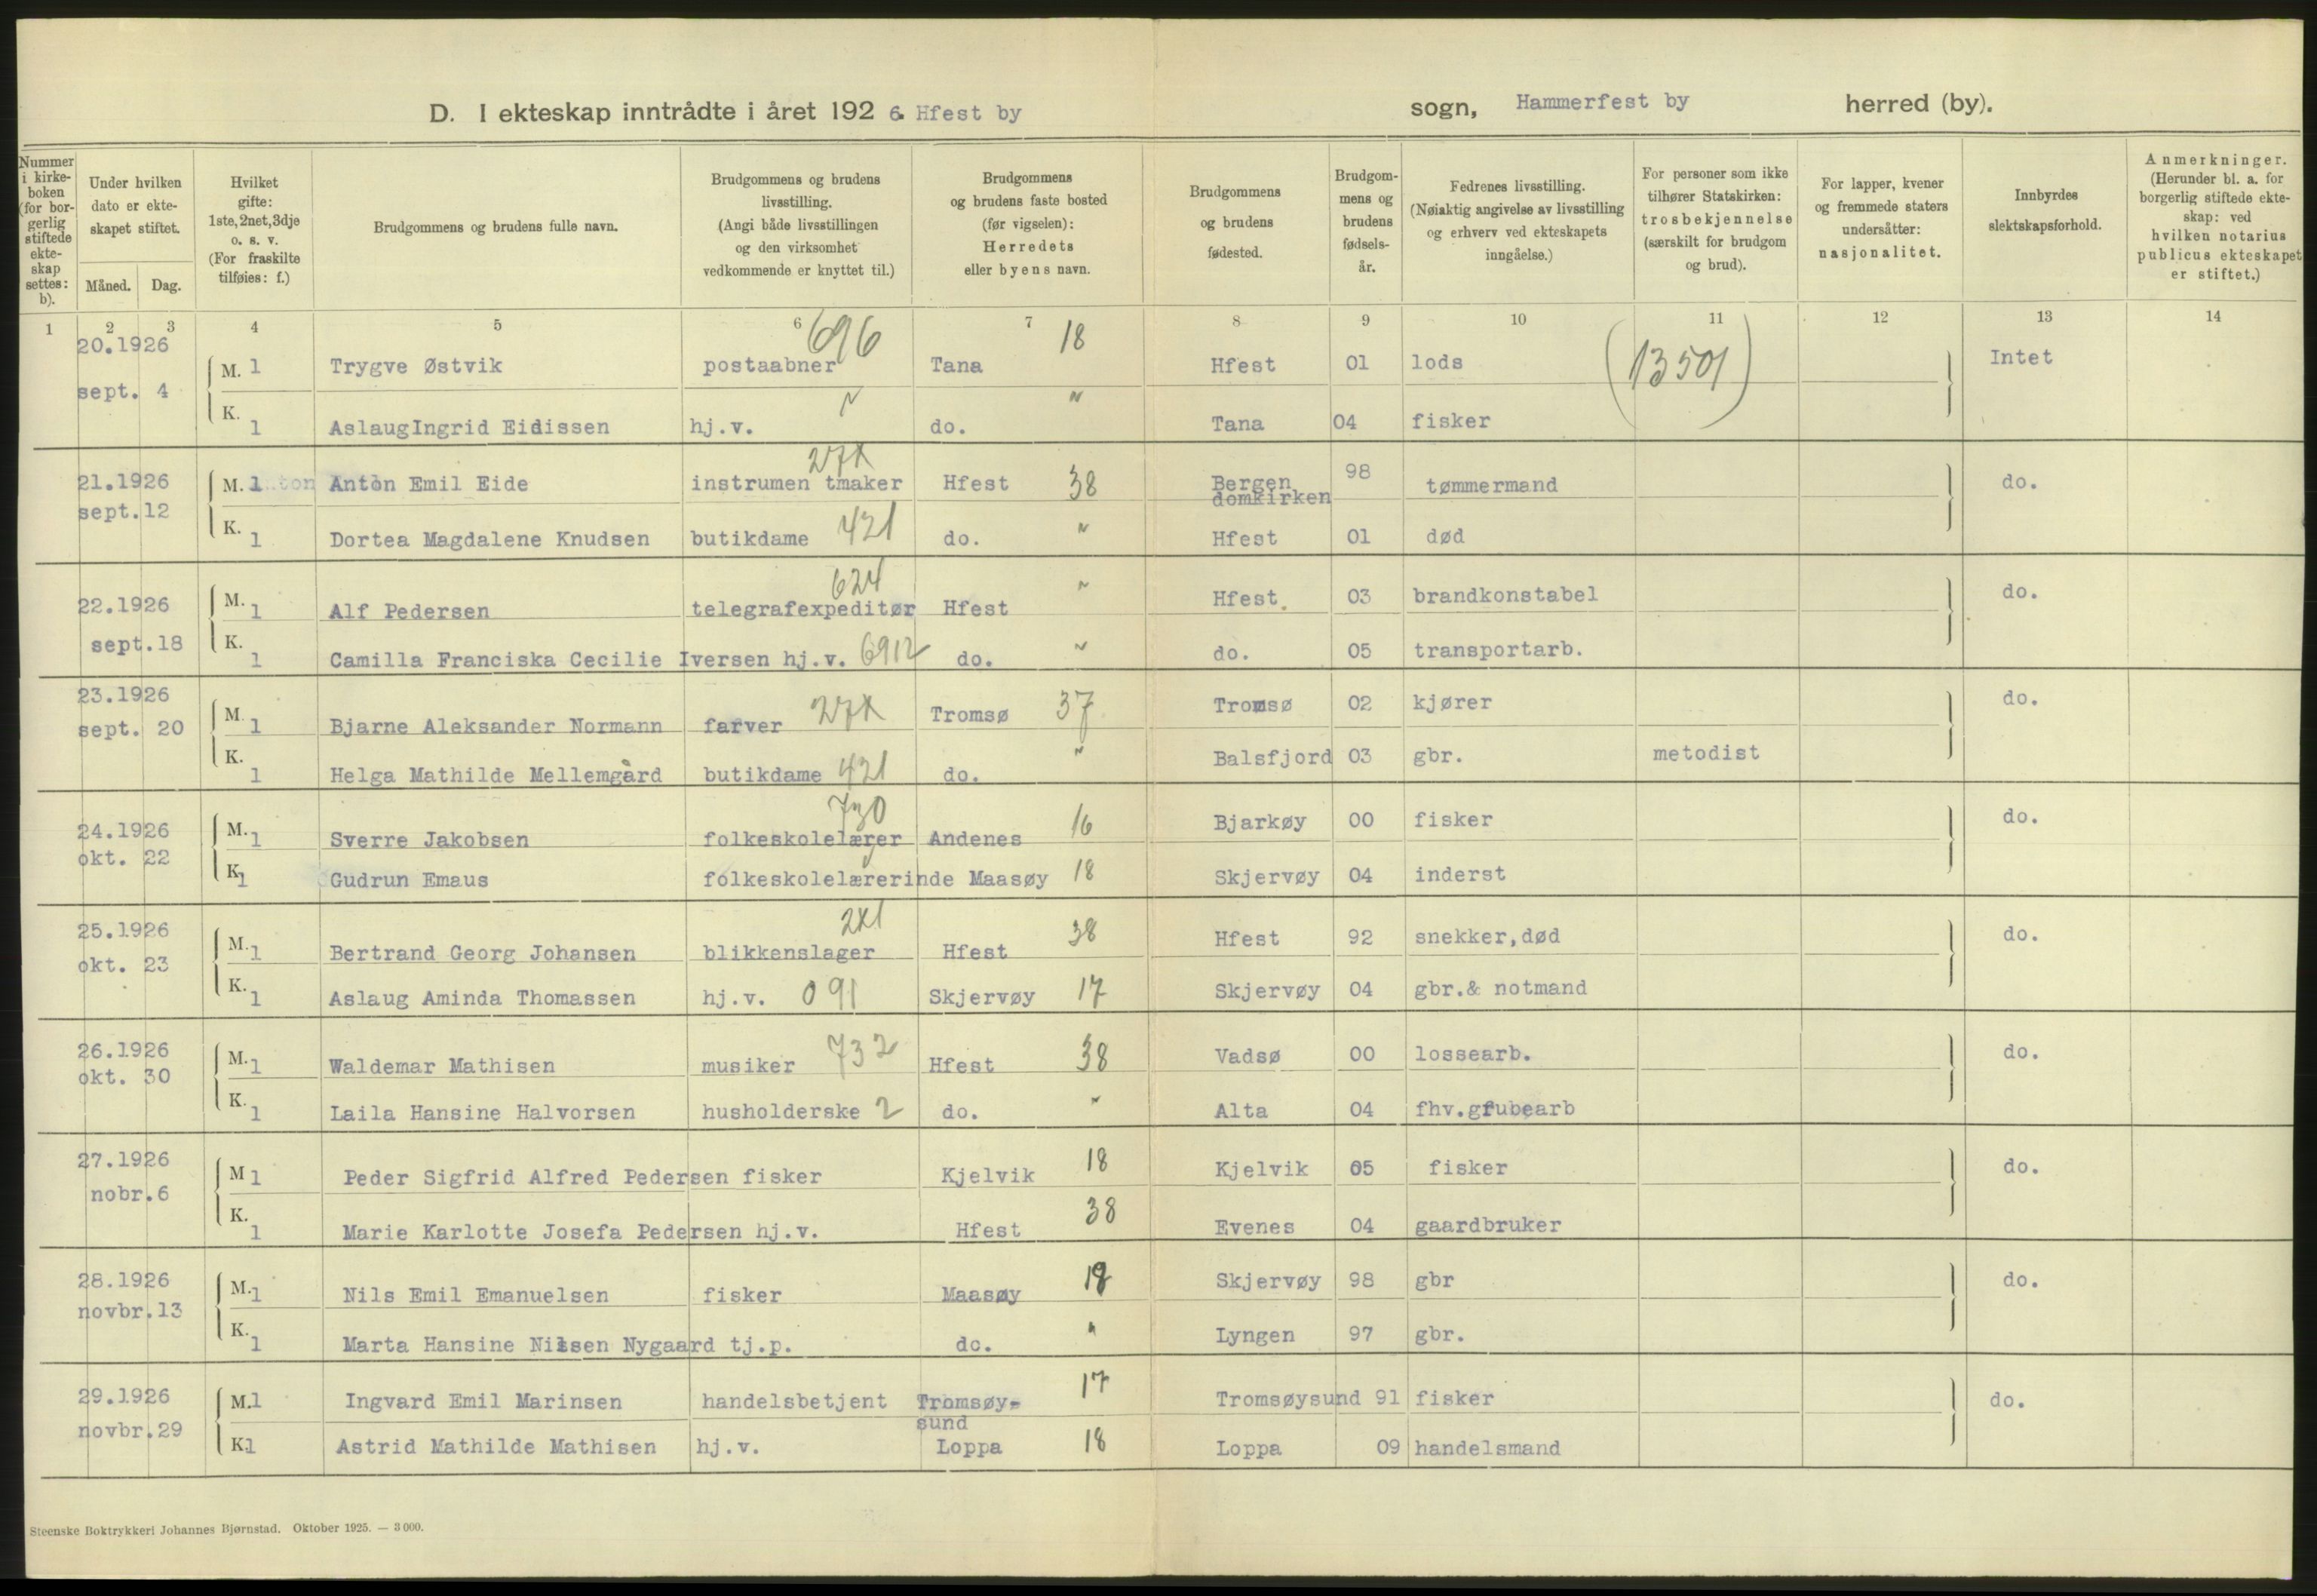 D. I ekteskap inntrådte i året 192 6. Hfest by sogn, Hammerfest by herred (by).
Nummer i kirkeboken (for borgerlig stiftede ekteskap settes: b).
Under hvilken dato er ekteskapet stiftet.
Måned. Dag.
Hvilket gifte: 1ste, 2net, 3dje o. s. v. (For fraskilte tilføies: f.)
Brudgommens og brudens fulle navn.
Brudgommens og brudens livsstilling. (Angi både livsstillingen og den virksomhet vedkommende er knyttet til.)
Brudgommens og brudens faste bosted (før vigselen): Herredets eller byens navn.
Brudgommens og brudens fødested.
Brudgommens og brudens fødselsår.
Fedrenes livsstilling. (Nøiaktig angivelse av livsstilling og erhverv ved ekteskapets inngåelse.)
For personer som ikke tilhører Statskirken: trosbekjennelse (særskilt for brudgom og brud).
For lapper, kvener og fremmede staters undersåtter: nasjonalitet.
Innbyrdes slektskapsforhold.
Anmerkninger. (Herunder bl. a. for borgerlig stiftede ekteskap: ved hvilken notarius publicus ekteskapet er stiftet.)
1 2 3 4 5 6 7 8 9 10 11 12 13 14
20.1926 M. 1 Trygve Østvik postaabner 696 Tana 18 Hfest 01 lods (13501) Intet
sept. 4 K. 1 AslaugIngrid Eidissen hj.v. " do. " Tana 04 fisker
21.1926 M. 1 Anton Emil Eide instrumen tmaker 27X Hfest 38 Bergen domkirken 98 tømmermand do.
sept.12 K. 1 Dortea Magdalene Knudsen butikdame 421 do. " Hfest 01 død
22.1926 M. 1 Alf Pedersen telegrafexpeditør 624 Hfest " Hfest. 03 brandkonstabel do.
sept.18 K. 1 Camilla Franciska Cecilie Iversen hj.v. 6912 do. " do. 05 transportarb.
23.1926 M. 1 Bjarne Aleksander Normann farver 27X Tromsø 37 Tromsø 02 kjører do.
sept. 20 K. 1 Helga Mathilde Mellemgård butikdame 421 do. " Balsfjord 03 gbr. metodist
24.1926 M. 1 Sverre Jakobsen folkeskolelærer 730 Andenes 16 Bjarkøy 00 fisker do.
okt. 22 K. 1 Gudrun Emaus folkeskolelærerinde Maasøy 18 Skjervøy 04 inderst
25.1926 M. 1 Bertrand Georg Johansen blikkenslager 2X1 Hfest 38 Hfest 92 snekker,død do.
okt. 23 K. 1 Aslaug Aminda Thomassen hj.v. 091 Skjervøy 17 Skjervøy 04 gbr.& notmand
26.1926 M. 1 Waldemar Mathisen musiker 732 Hfest 38 Vadsø 00 lossearb. do.
okt. 30 K. 1 Laila Hansine Halvorsen husholderske 2 do. " Alta 04 fhv.grubearb
27.1926 M 1 Peder Sigfrid Alfred Pedersen fisker Kjelvik 18 Kjelvik 05 fisker do.
nobr.6 K. 1 Marie Karlotte Josefa Pedersen hj.v. Hfest 38 Evenes 04 gaardbruker
28.1926 M. 1 Nils Emil Emanuelsen fisker Maasøy 18 Skjervøy 98 gbr do.
novbr.13 K. 1 Marta Hansine Nilsen Nygaard tj.p. do. " Lyngen 97 gbr.
29.1926 M. 1 Ingvard Emil Marinsen handelsbetjent Tromsøy-sund 17 Tromsøysund 91 fisker do.
novbr.29 K. 1 Astrid Mathilde Mathisen hj.v. Loppa 18 Loppa 09 handelsmand
Steenske Boktrykkeri Johannes Bjørnstad. Oktober 1925. — 3 000.